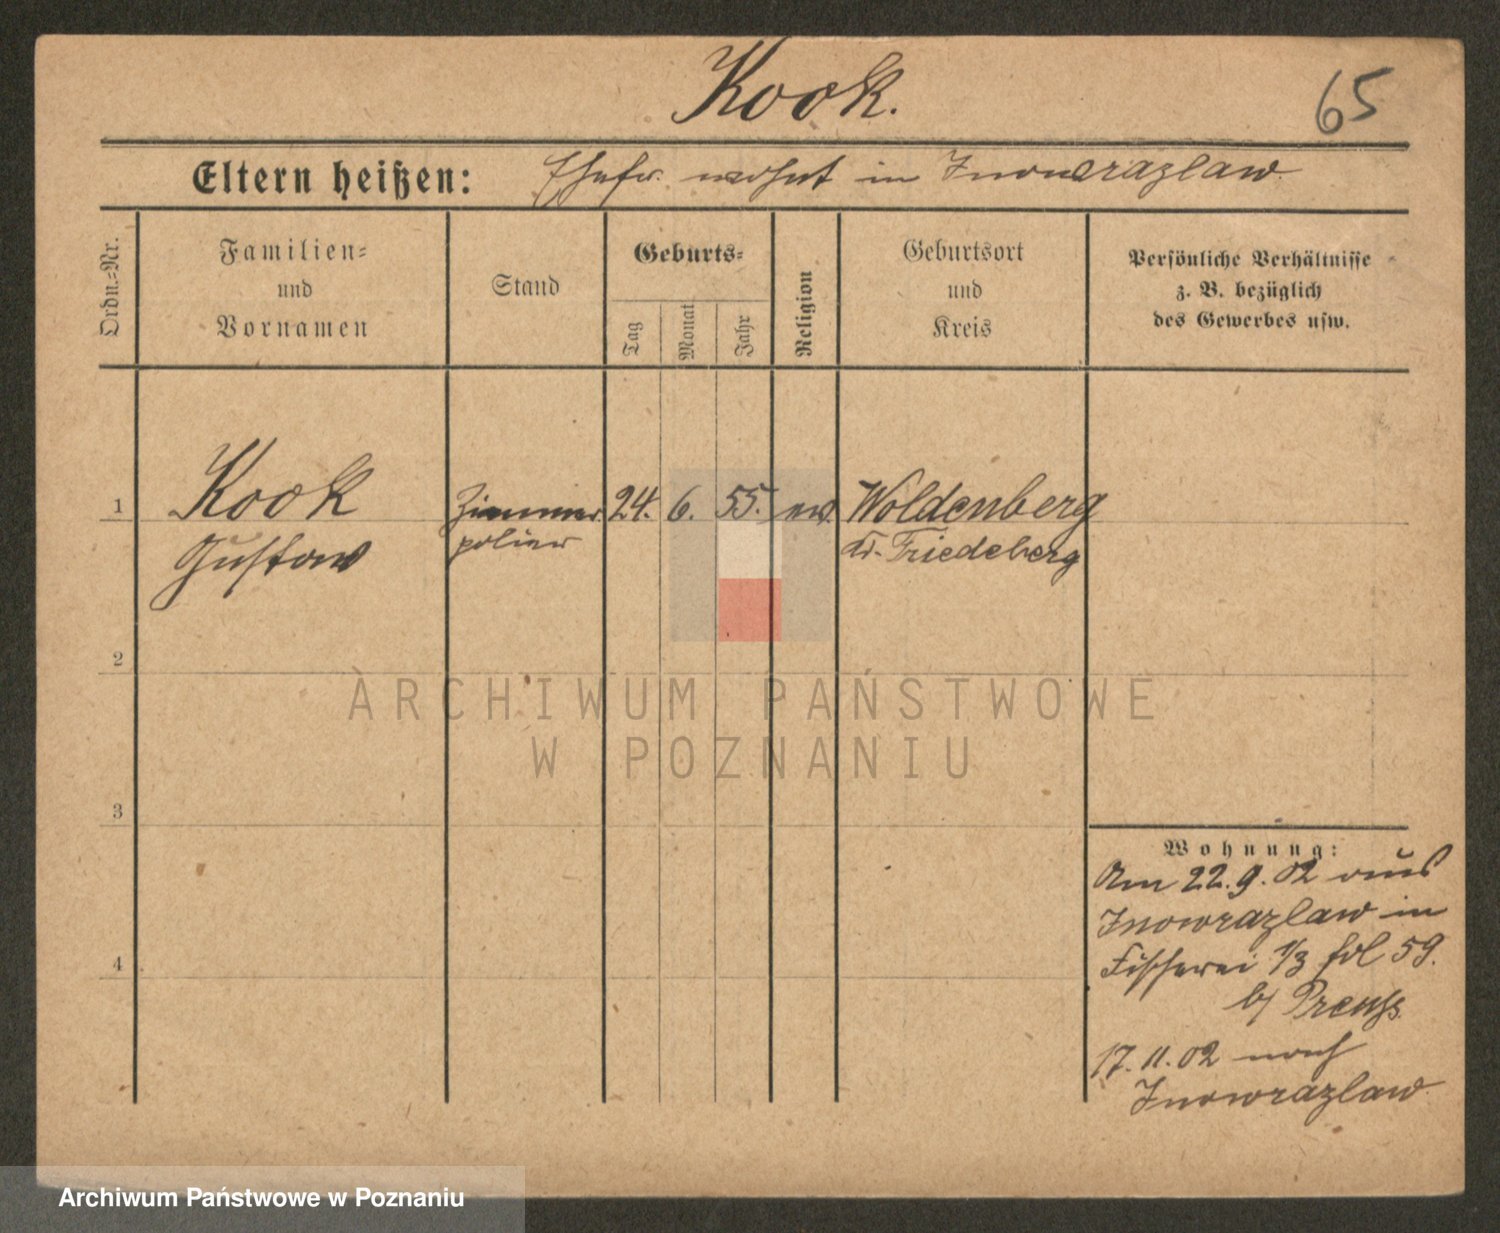 Kook.
65
Eltern heißen:
Ehefr. wohnt in Inowrazlaw.
Ordn.=Nr.
Familien=
und
Vornamen
Stand
Geburts=
Tag
Monat
Jahr
Religion
Geburtsort
und
Kreis
Persönliche Verhältnisse
z. B. bezüglich
des Gewerbes usw.
1
Kook
Gustav
Zimmer
polier
24.
6.
55.
ev.
Woldenberg
Kr. Friedeberg
2
ARCHIWUM PAŃSTWOWE
W POZNANIU
3
4
Wohnung:
Am 22.9.02 aus
Inowrazlaw in
Fischerei 1/3 fol 59.
b/ Preuß.
17.11.02 nach
Inowrazlaw.
Archiwum Państwowe w Poznaniu